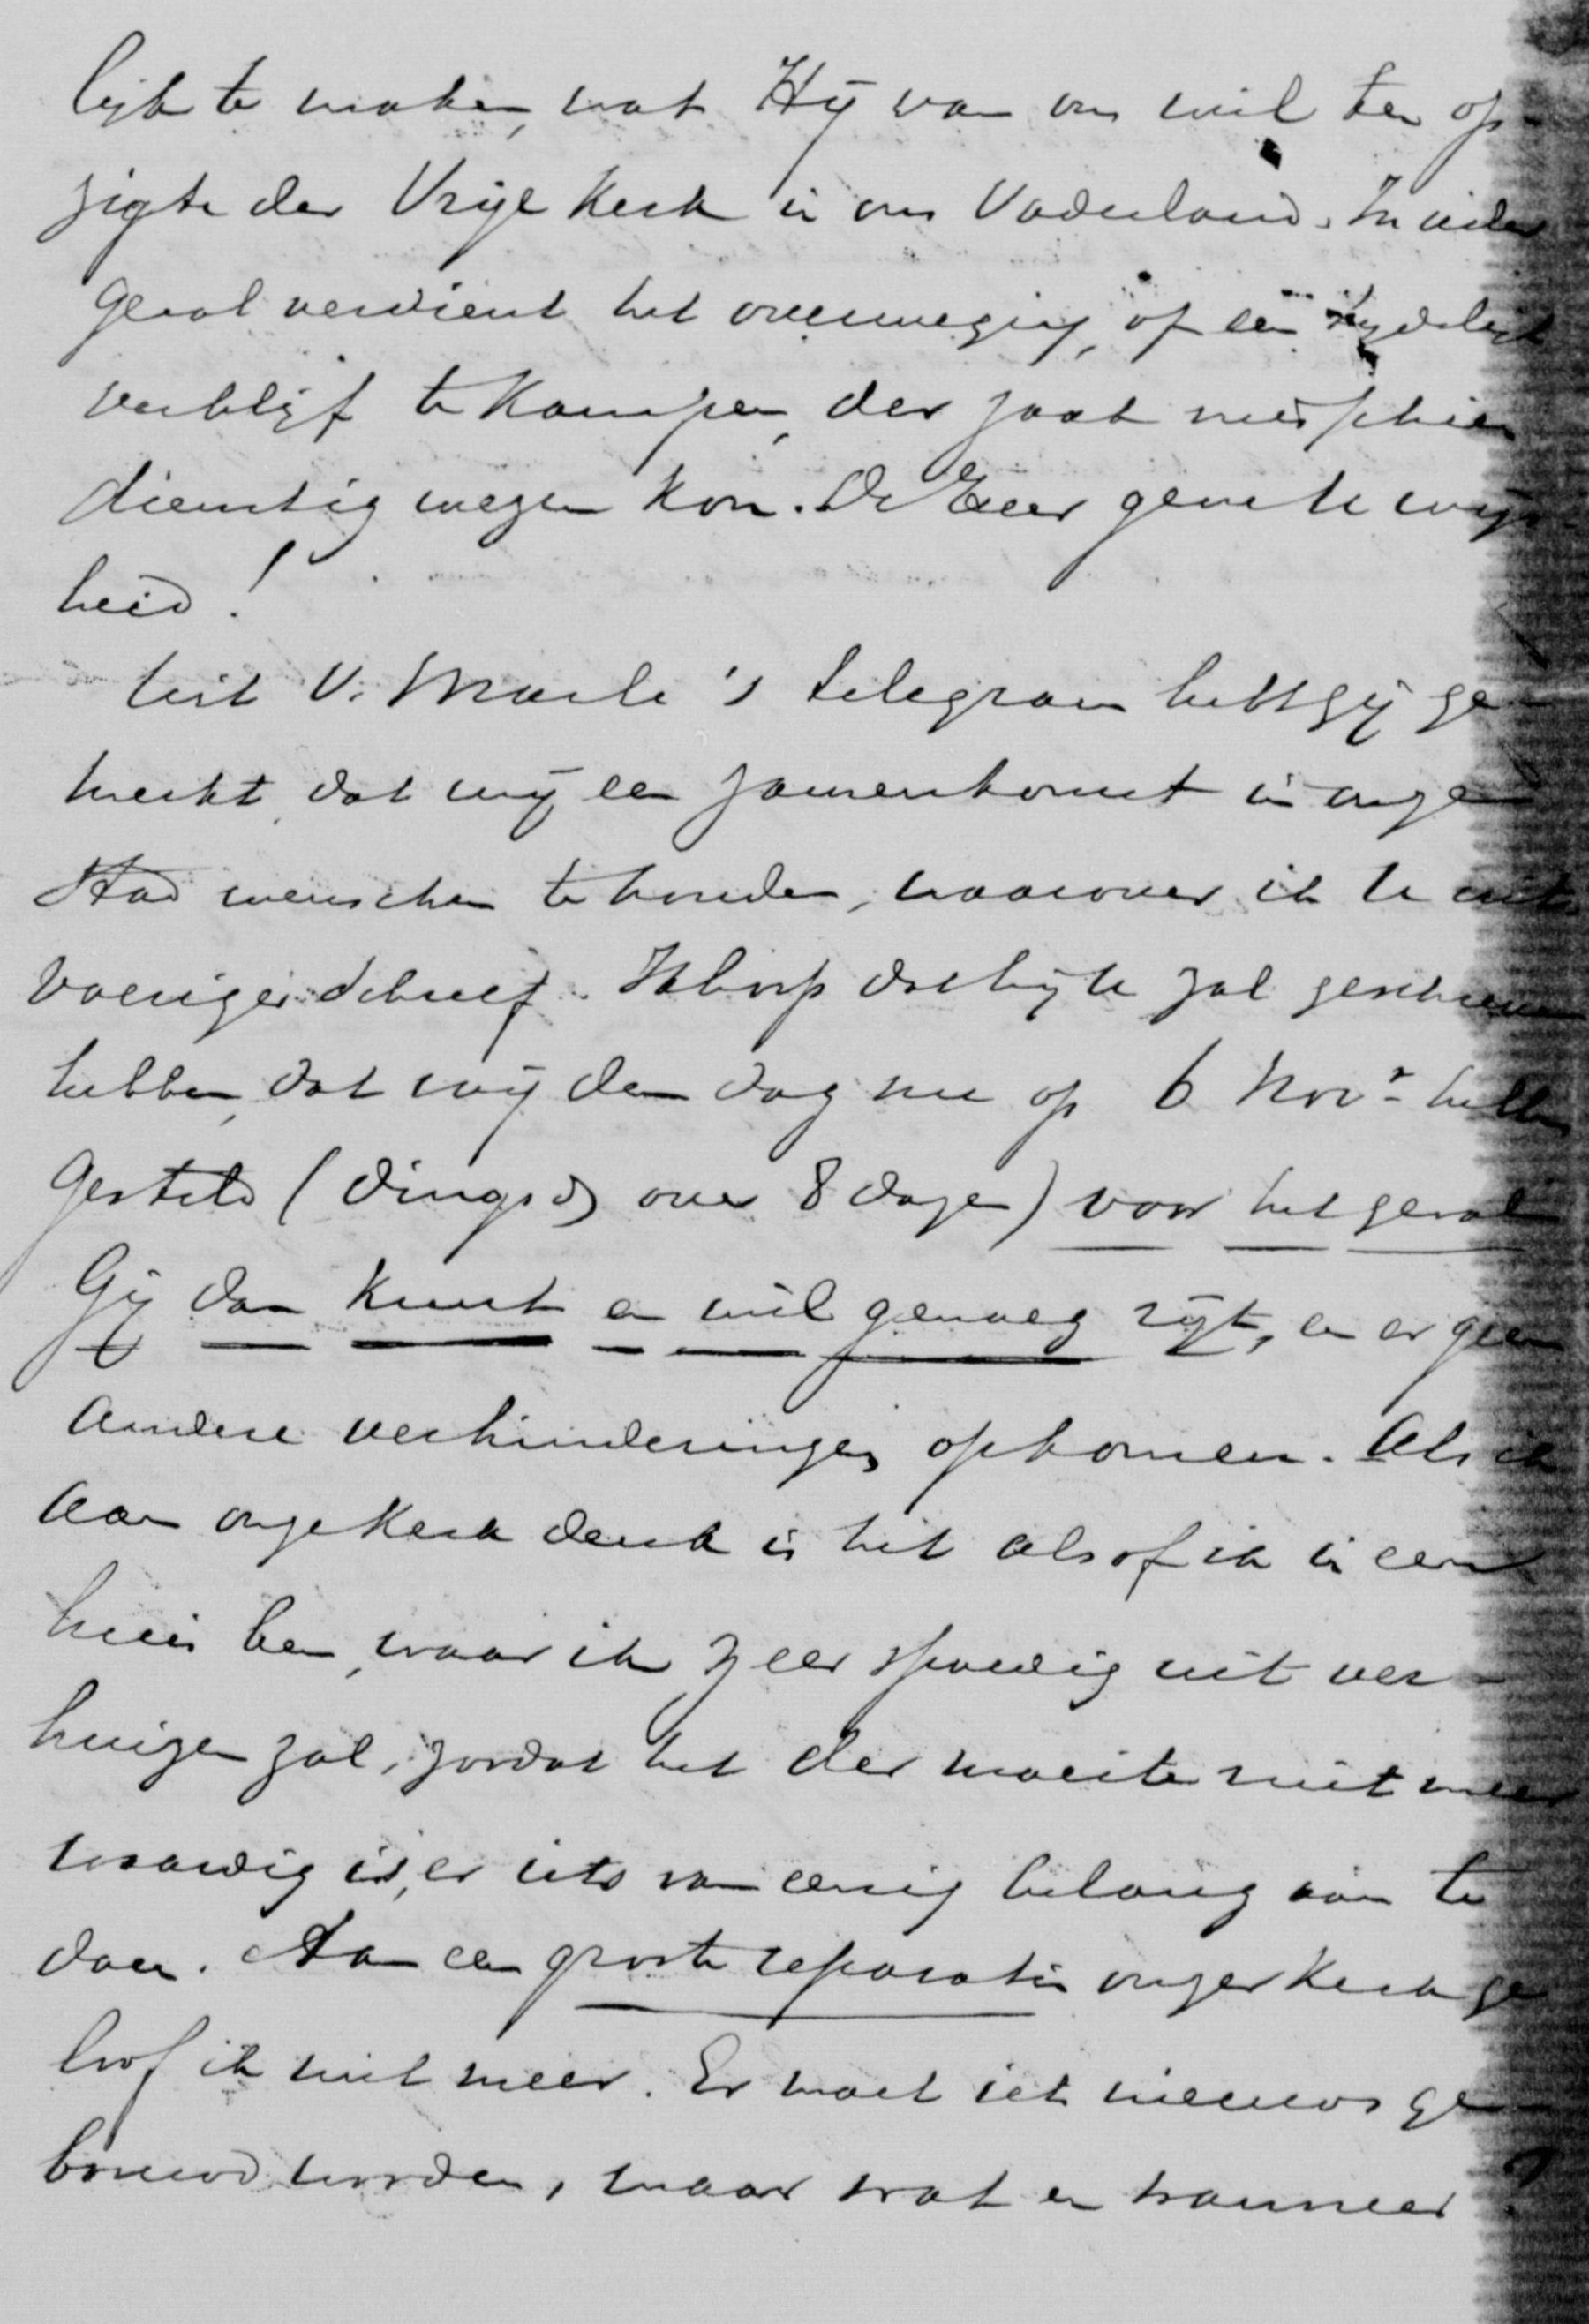 lijk te maken, wat Hij van ons wil ten op-
zigte der Vrije Kerk in ons Vaderland. In ieder
geval verdient het overweging, of een tijdelijk
verblijf te Kampen, der zaak misschien
dienstig wezen kon. De Heer geve U wijs-
heid!
Uit V. Marle's telegram hebt gij ge-
merkt, dat wij een zamenkomst in onze
Stad wenschen te houden, waarover ik U
vroeger schreef. Ik hoop dat hij U zal geschreven
hebben, dat wij den dag nu op 6 Novr. hebben
gesteld (Dingsd. over 8 dagen) voor het geval
Gij dan kunt en wel genoeg zijt, en er geen
andere verhinderingen opkomen. Als ik
aan onze Kerk denk is het alsof ik in een
huis ben, waar ik zeer spoedig uit ver-
huizen zal, zoodat het der moeite niet meer
waardig is, er iets van eenig belang aan te
doen. Aan een groote reparatie onzer Kerk ge
loof ik niet meer. Er moet iets nieuws ge-
bouwd worden, maar wat en wanneer?